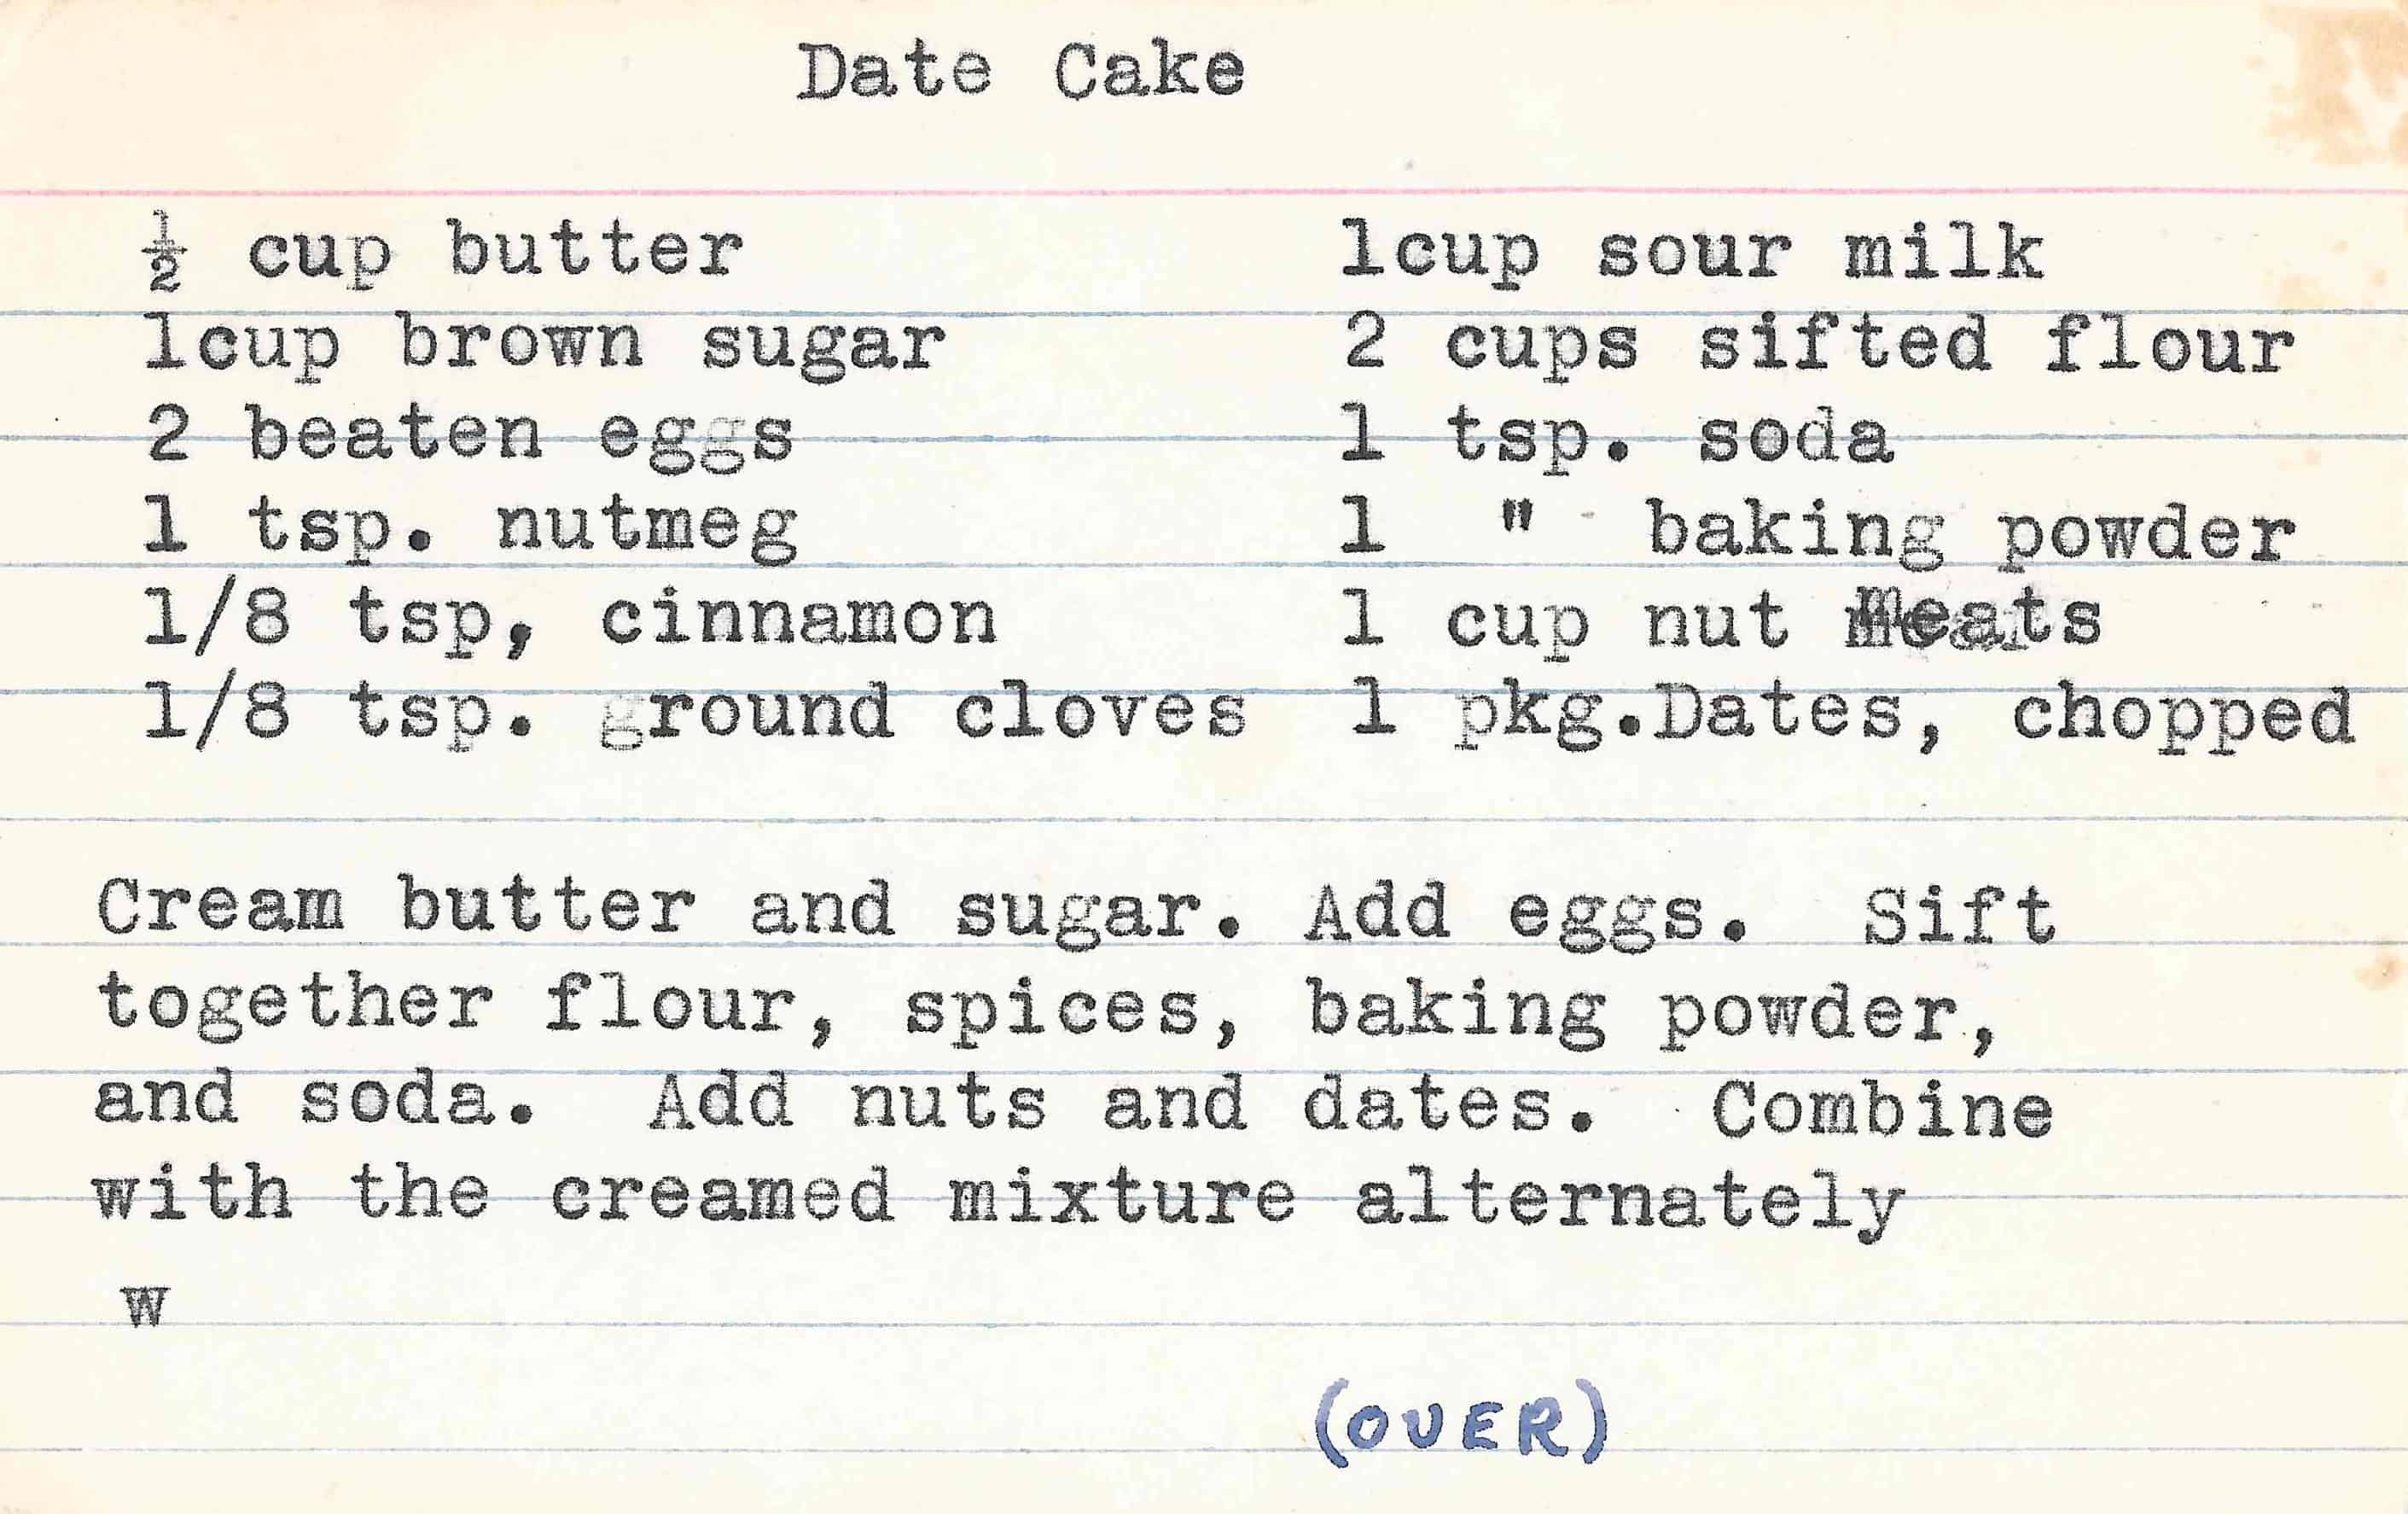 Date Cake
½ cup butter
1cup brown sugar
2 beaten eggs
1 tsp. nutmeg
1/8 tsp, cinnamon
1/8 tsp. ground cloves
1cup sour milk
2 cups sifted flour
1 tsp. soda
1 " baking powder
1 cup nut meats
1 pkg.Dates, chopped
Cream butter and sugar. Add eggs. Sift
together flour, spices, baking powder,
and soda. Add nuts and dates. Combine
with the creamed mixture alternately
w
(OVER)